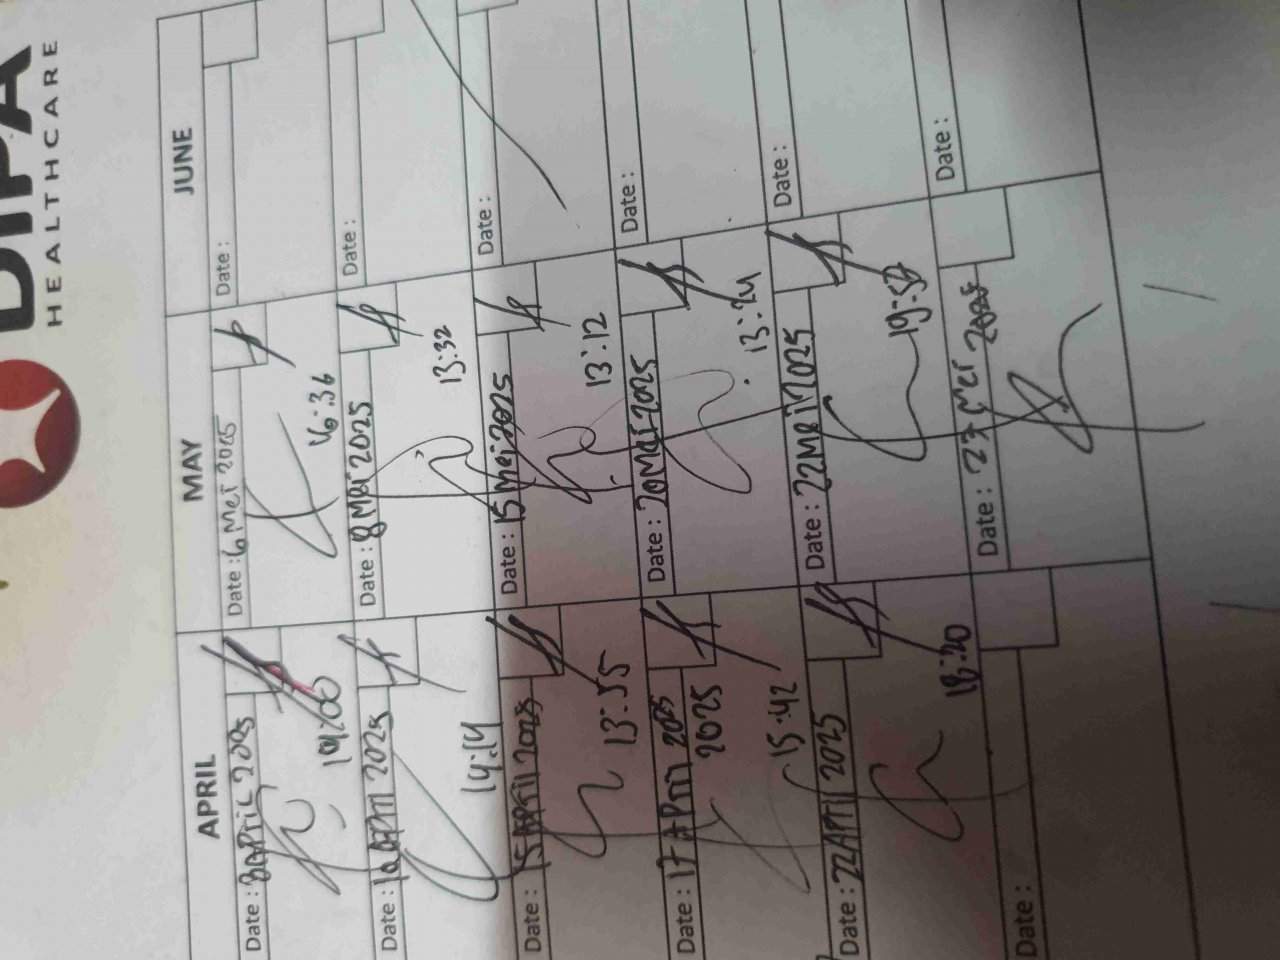 DIPA
HEALTHCARE
APRIL
MAY
JUNE
Date : 8 APRIL 2025
19:00
Date : 6 Mei 2025
16:36
Date :
Date : 10 APRIl 2025
14:14
Date : 8 MEi 2025
13:32
Date :
Date : 15 APRil 2025
13:55
Date : 15 Mei 2025
13:12
Date :
Date : 17 APRil 2025
2025
15:42
Date : 20 Mei 2025
13:24
Date :
Date : 22 APRil 2025
18:20
Date : 22 MEi 2025
19:50
Date :
Date :
Date : 27 Mei 2025
Date :